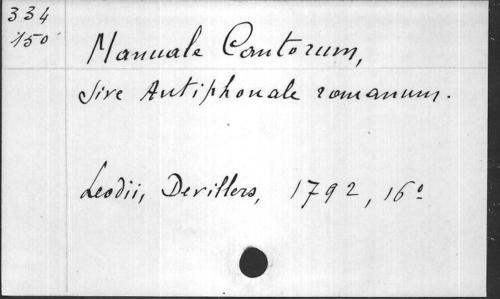 334
150
Manuale Cantorum,
sive Antiphonale romanum.
Leodii, Devillers, 1792, 16°